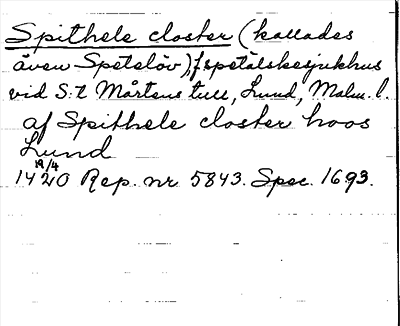 Spithele closter (kallades
även Spetelöv) f. spetälskesjukhus
vid S:t Mårtens tull, Lund, Malm. l.
af Spithele closter hoos
Lund
19/4
1420 Rep. nr 5843. Spec. 1693.